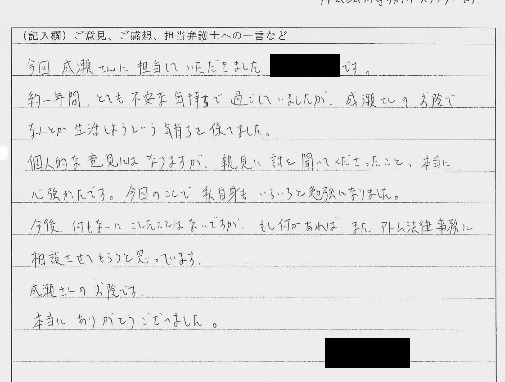 （記入欄）ご意見、ご感想、担当弁護士への一言など
今回 成瀬さんに 担当して いただきました です。
約一年間、とても 不安な 気持ちで 過ごしていましたが、成瀬さんの お陰で
なんとか 生活しようという 気持ちを 保てました。
個人的な 意見には なりますが、親身に 話を 聞いてくださったこと、本当に
心強かったです。今回のことで 私自身も いろいろと勉強になりました。
今後 何も こしたことはないですが、もし何かあれば また、アトム法律事務に
相談させてもらうと思っています。
成瀬さんの お陰です。
本当に ありがとうございました。